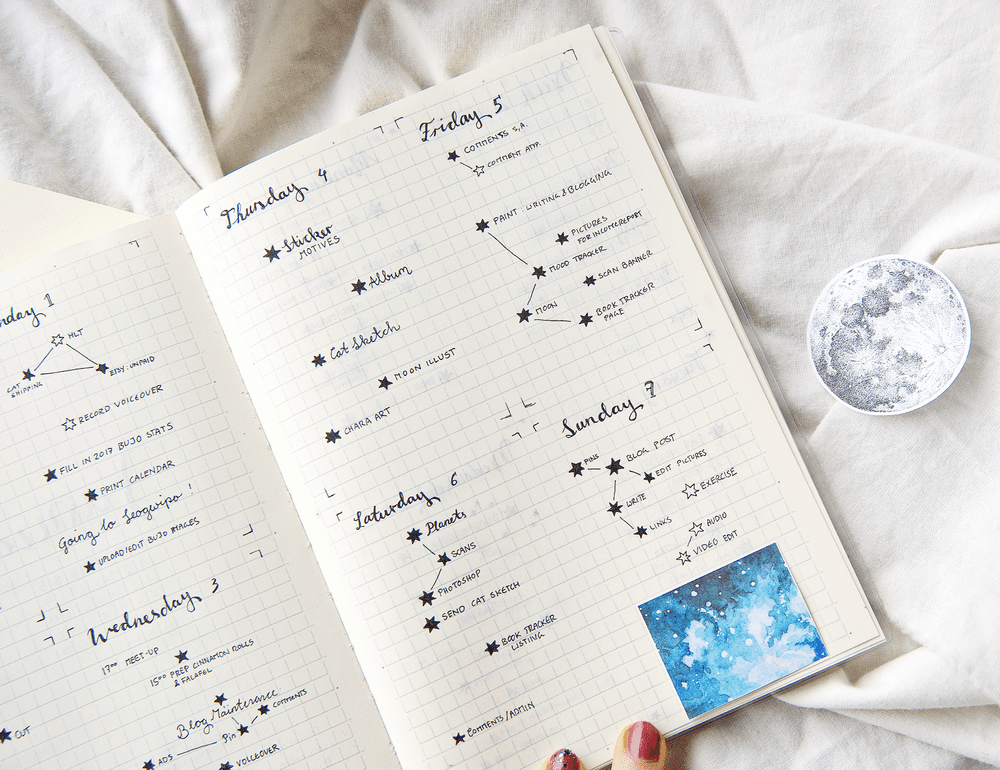 nday 1
HLT
CAT
SHIPPING
ETSY: UNPAID
RECORD VOICEOVER
FILL IN 2017 BUJO STATS
PRINT CALENDAR
Going to Seogwipo !
UPLOAD/EDIT BUJO IMAGES
Wednesday 3
17⁰⁰ MEET-UP
15⁰⁰ PREP CINNATION ROLLS
& FALAFEL
Blog Maintenance
COMMENTS
Pin
ADS
VOICEOVER
CUT
Thursday 4
Sticker
MOTIVES
Album
Cat Sketch
MOON ILLUST
CHARA ART
Friday 5
COMMENTS S.A.
COMMENT APP.
PAINT: WRITING & BLOGGING
PICTURES
FOR INCOME REPORT
MOOD TRACKER
SCAN BANNER
MOON
BOOK TRACKER
PAGE
Saturday 6
Planets
SCANS
PHOTOSHOP
SEND CAT SKETCH
BOOK TRACKER
LISTING
COMMENTS/ADMIN
Sunday 7
PINS
BLOG POST
EDIT PICTURES
WRITE
EXERCISE
LINKS
AUDIO
VIDEO EDIT